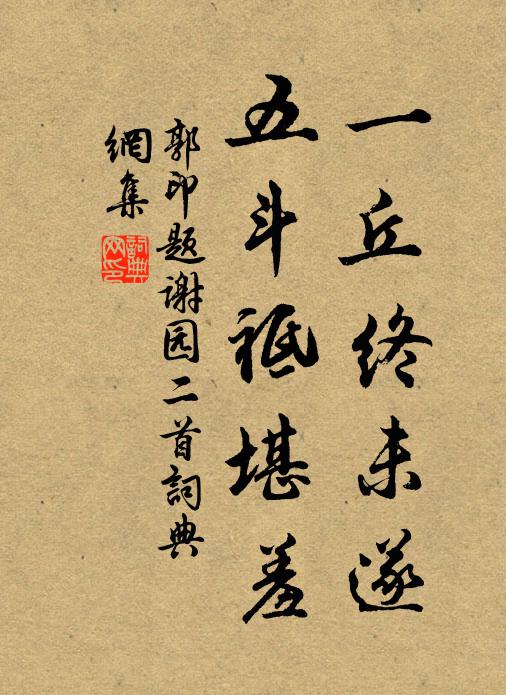 一丘终未遂
五斗祗堪羞
郭印题谢园二首詞典
網集
詞典
网印